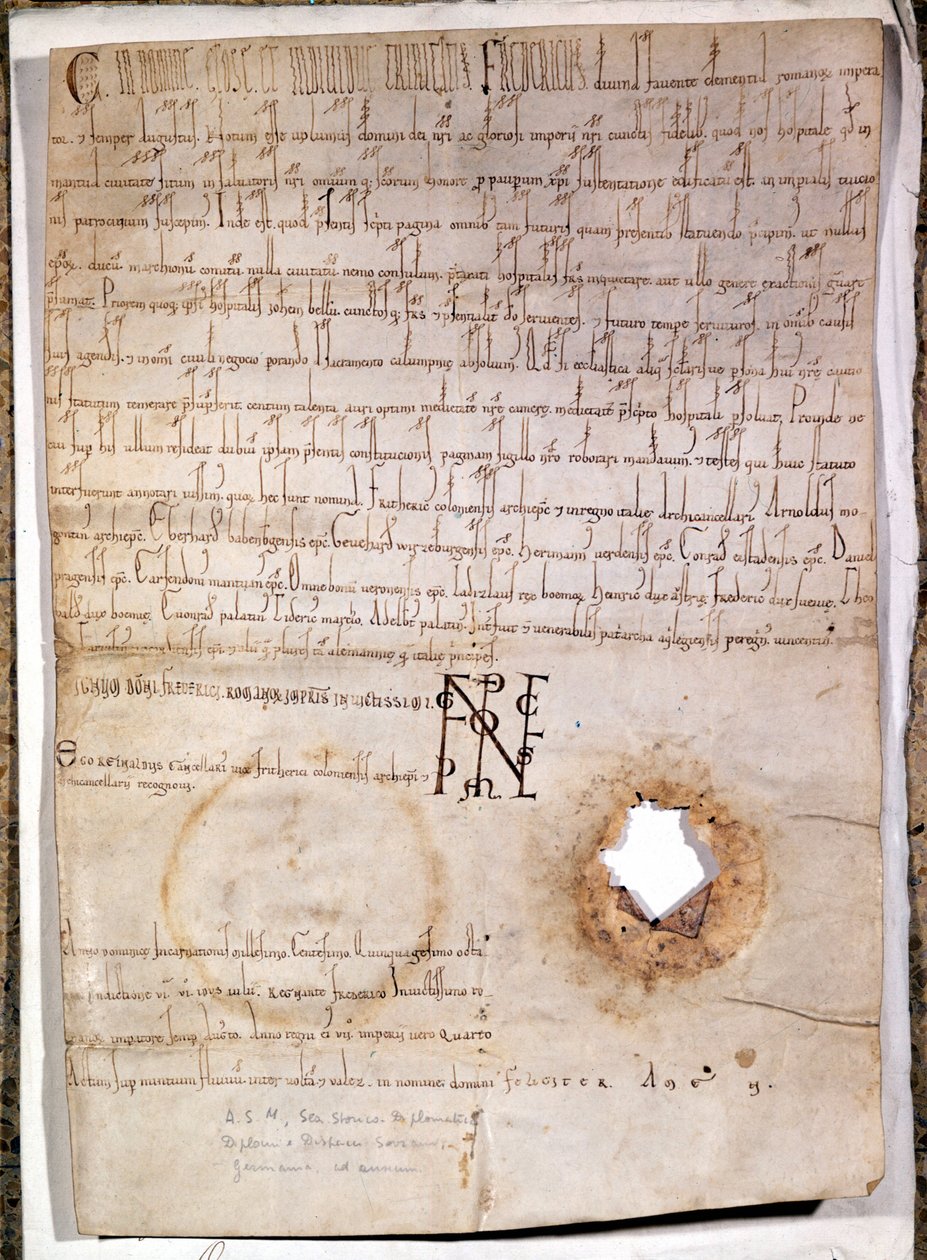 C. IN NOMINE. SCE. ET INDIVIDUE TRINITATIS. FREDERICUS. divina favente clementia romanoꝝ impera
tor. ⁊ semper augustus. Notum esse volumus domini dei nr̄i ac gloriosi imperii nr̄i cunctis fidelib. quod nos hospitale qd̄ in
mantua civitate situm in salvatoris nr̄i omnium q; sc̄orum honore p paupum xp̄i sustentatione edificatū est. in imp̄ialis tuicio
nis patrocinium suscepim. Inde est quod p̄senti sc̄pti pagina omnib tam futuris quam presentib statuendo p̄cipim. ut nullus
ep̄oꝝ. ducū. marchionū comitū. nulla civitatū nemo consulum. p̄tarati hospitalis fr̄s inquietare. aut ullo genere exactionis gͣvare
p̄sumat. Priorem quoq; ip̄si hospitalis ioh̄em bellū. cunctos q; fr̄s ⁊ p̄sentialit̄ d̄o servientes. ⁊ futuro tempe servituros. in om̄ib causis
suis agendis. ⁊ in om̄i civili negocio porando sacramento calumpnie absolvim. Qd̄ si ecclesiastica aliq̄ sc̄larisve p̄sona hui nr̄ę conditio
nis statutum temerare p̄sūpserit. centum talenta auri optimi medietatē nr̄e camerę. medietatē p̄sc̄pto hospitali p̄solvat. Proinde ne
cui sup his ullum resideat dubiū ip̄sam p̄sentis constitucionis paginam sigillo nr̄o roborari mandavim. ⁊ testes qui huic statuto
interfuerunt annotari iussim. quoꝝ hec sunt nomina. Fritheric coloniensis archiepc̄ ⁊ in regno italię archicancellari. Arnoldus mo
gontin archiepc̄. Eberhard babenbgensis epc̄. Gevehard wirzeburgensis epc̄. Hermann verdensis epc̄. Conrad eistadensis epc̄. Daniel
pragensis epc̄. Carsendoni mantuan epc̄. Omnebonū veronensis epc̄. Ladizlaus rex boemoꝝ. Heinric dux astrię. Frederic dux suevię. Theo
bald dux boemię. Cuonrad palatin. Tideric march̄o. Adelbt palatin. Intfuit ⁊ venerabilis pat̄archa aq̄legiensis peregrin.
epī. ⁊ alii q̄ plures tā alemannię q̄ italię p̄ncipes.
SIGNUM DOM̄I. FREDERICI. ROMANOꝜ IMPR̄IS INVICTISSIMI.
EGO REINALDUS CANCELLARI vice fritherici coloniensis archiepī ⁊
archicancellarii recognovi.
Anno dominicę Incarnationis Millesimo. Centesimo. Quinquagesimo octa
Indictione VI. VI. idus iulii. Regnante Frederico Invictissimo ro
manoꝝ impatore semp Aug̅to. Anno regni ei VII. imperii vero Quarto
Actum sup mintium fluviū inter volta ⁊ valez. in nomine domini FELICITER. AMEN.
A.S.M., Sez. Storico-Diplomatica
Diplomi e Dispacci Sovrani,
Germania, ad annum.